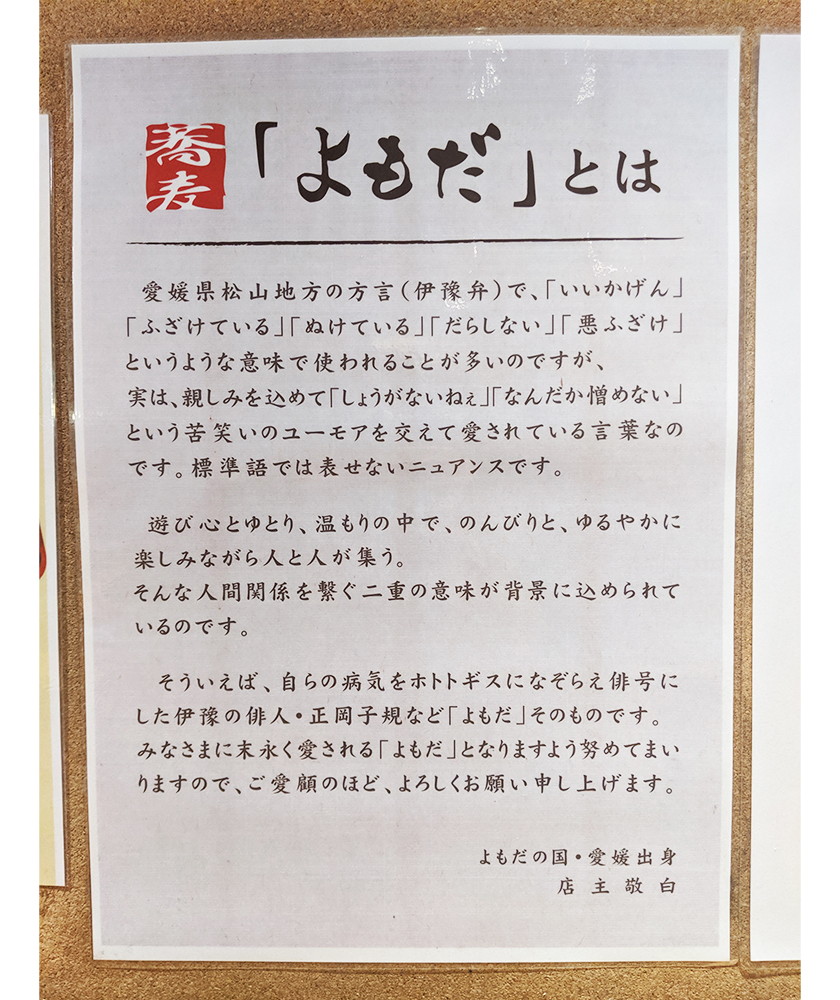 蕎麦
「よもだ」とは
愛媛県松山地方の方言(伊豫弁)で、「いいかげん」
「ふざけている」「ぬけている」「だらしない」「悪ふざけ」
というような意味で使われることが多いのですが、
実は、親しみを込めて「しょうがないねぇ」「なんだか憎めない」
という苦笑いのユーモアを交えて愛されている言葉なの
です。標準語では表せないニュアンスです。
遊び心とゆとり、温もりの中で、のんびりと、ゆるやかに
楽しみながら人と人が集う。
そんな人間関係を繋ぐ二重の意味が背景に込められて
いるのです。
そういえば、自らの病気をホトトギスになぞらえ俳号に
した伊豫の俳人・正岡子規など「よもだ」そのものです。
みなさまに末永く愛される「よもだ」となりますよう努めてまい
りますので、ご愛顧のほど、よろしくお願い申し上げます。
よもだの国・愛媛出身
店主敬白